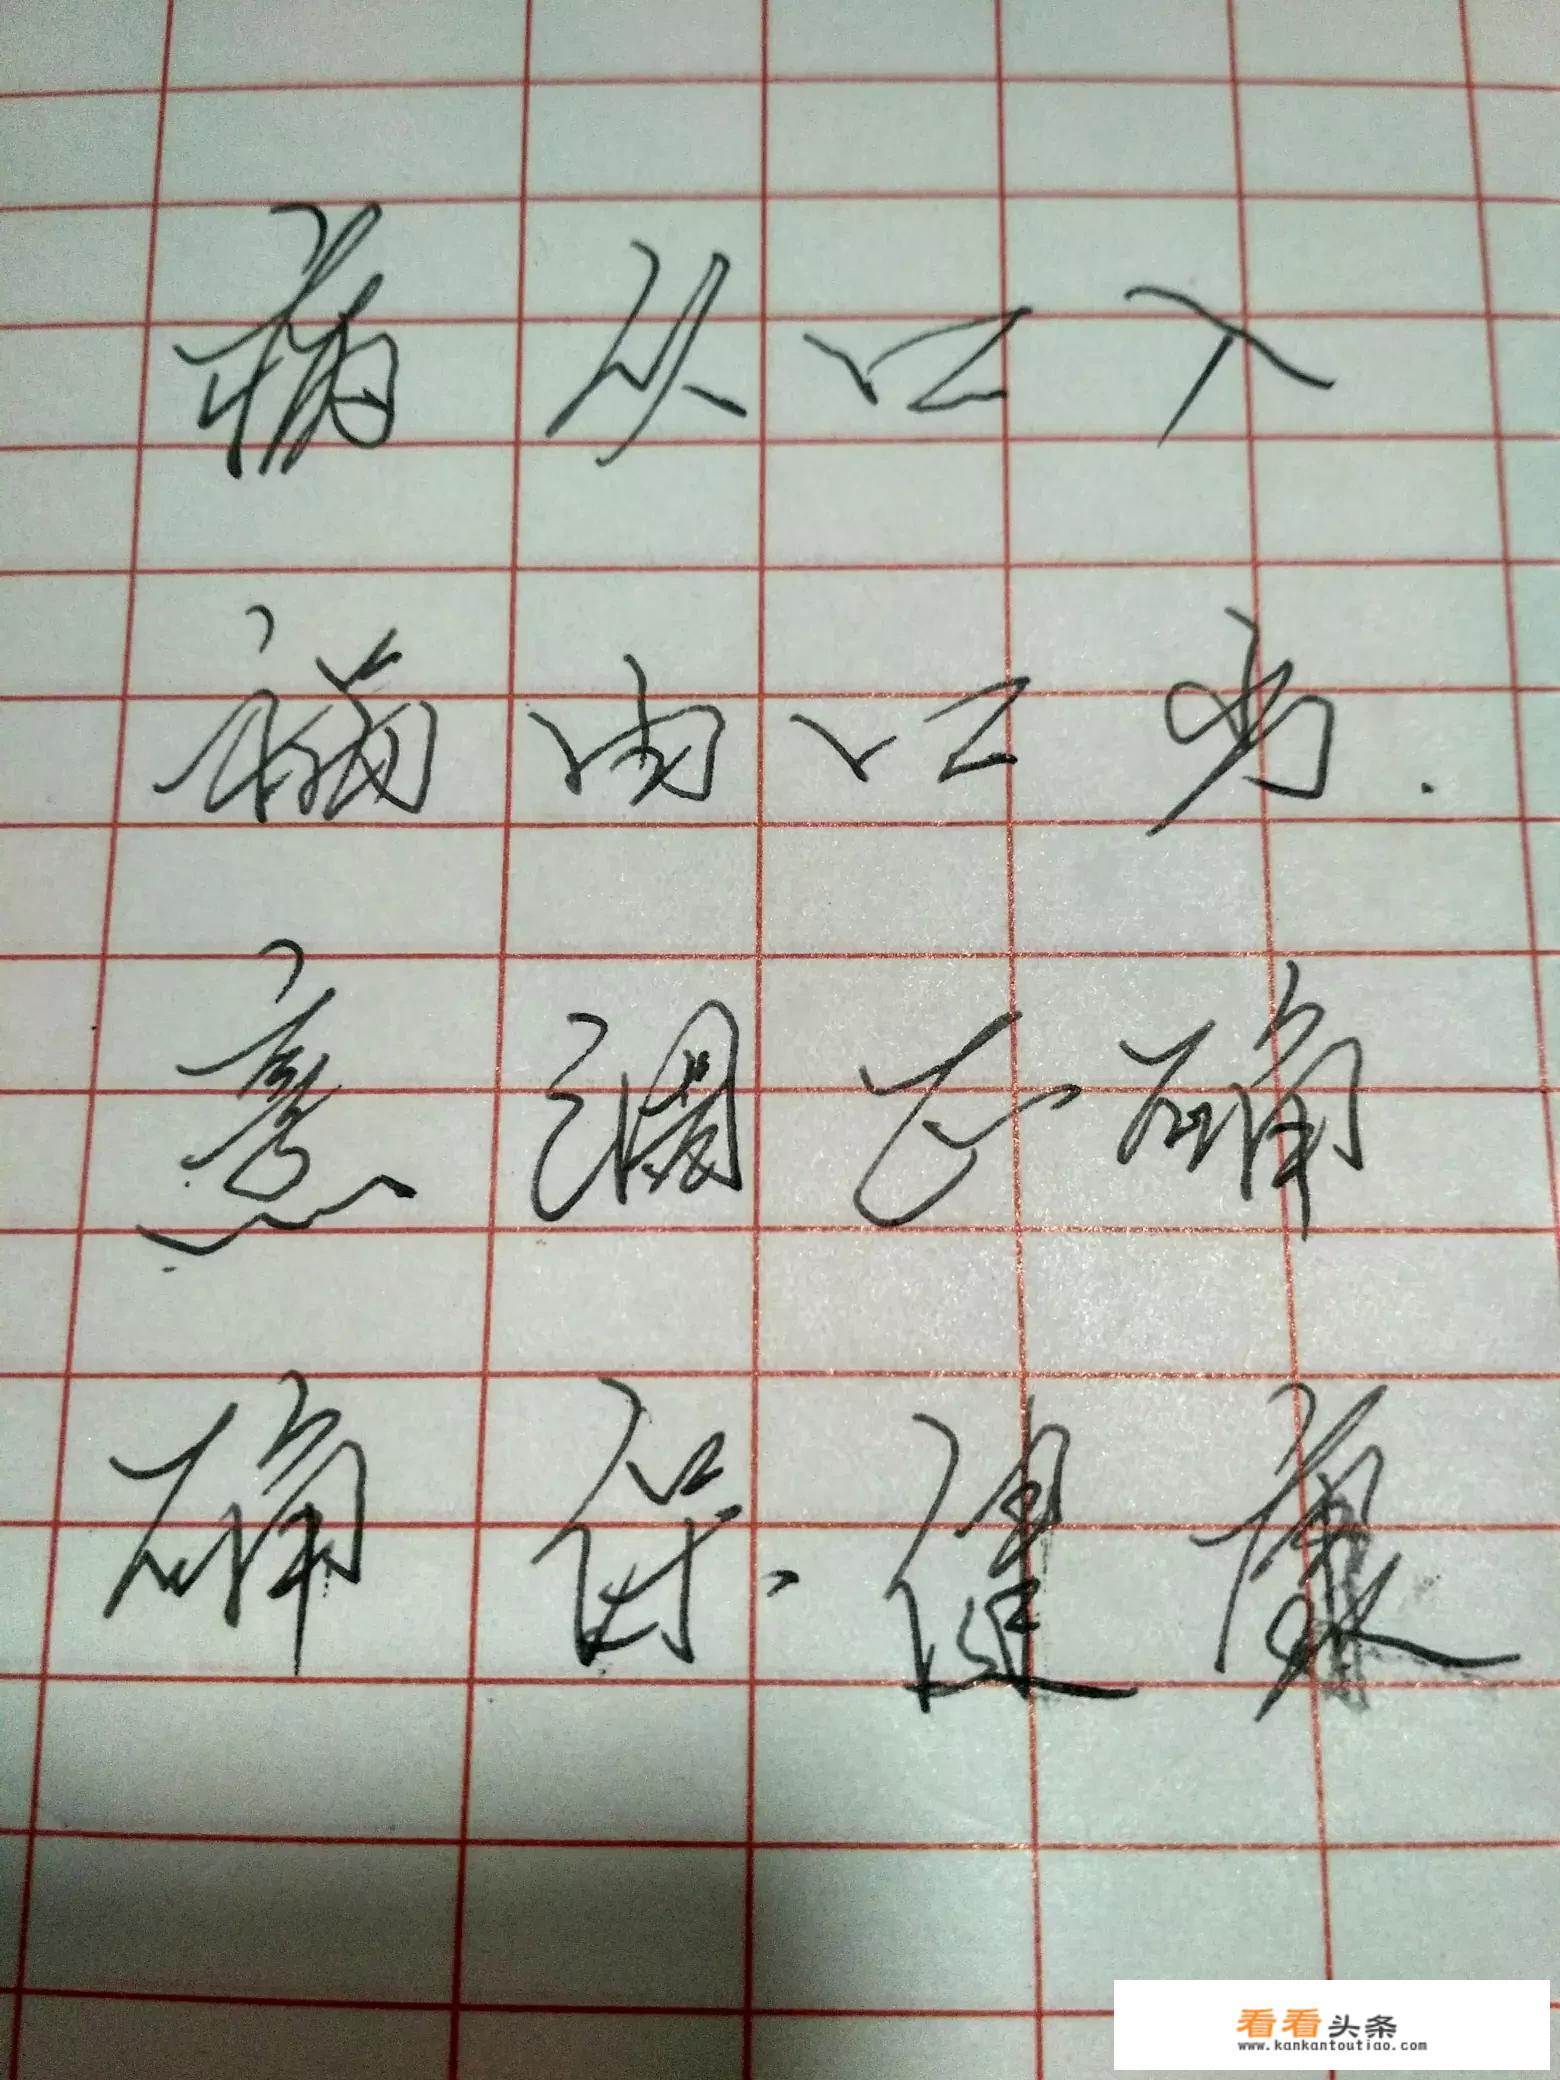 病从口入
祸由口出.
烹调正确
确保、健康
看看头条
www.kankantoutiao.com